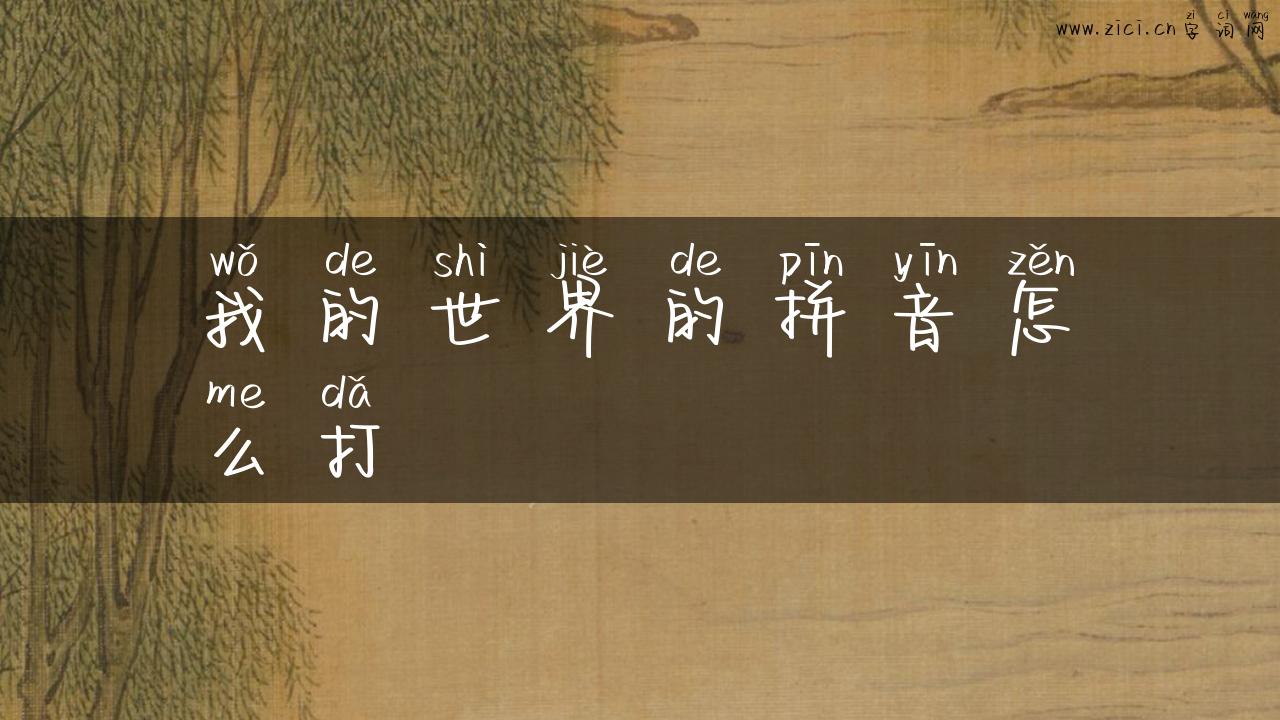 zì cí wǎng
www.zici.cn 字词网
wǒ de shì jiè de pīn yīn zěn
我的世界的拼音怎
me dǎ
么打